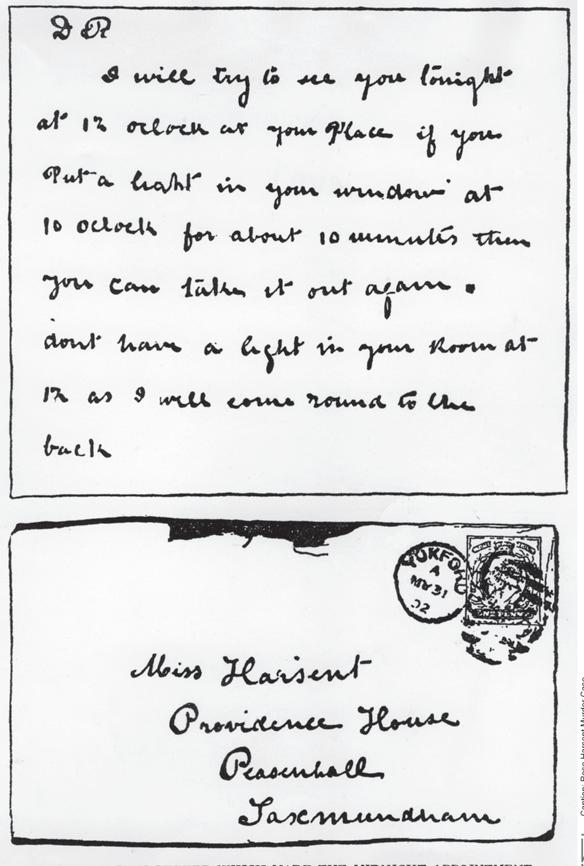 D R
I will try to see you tonight
at 12 oclock at your Place if you
Put a light in your window at
10 oclock for about 10 minutes then
you can take it out again.
dont have a light in your Room at
12 as I will come round to the
back
YOXFORD
A
MY 31
02
Miss Harsent
Providence House
Peasenhall
Saxmundham